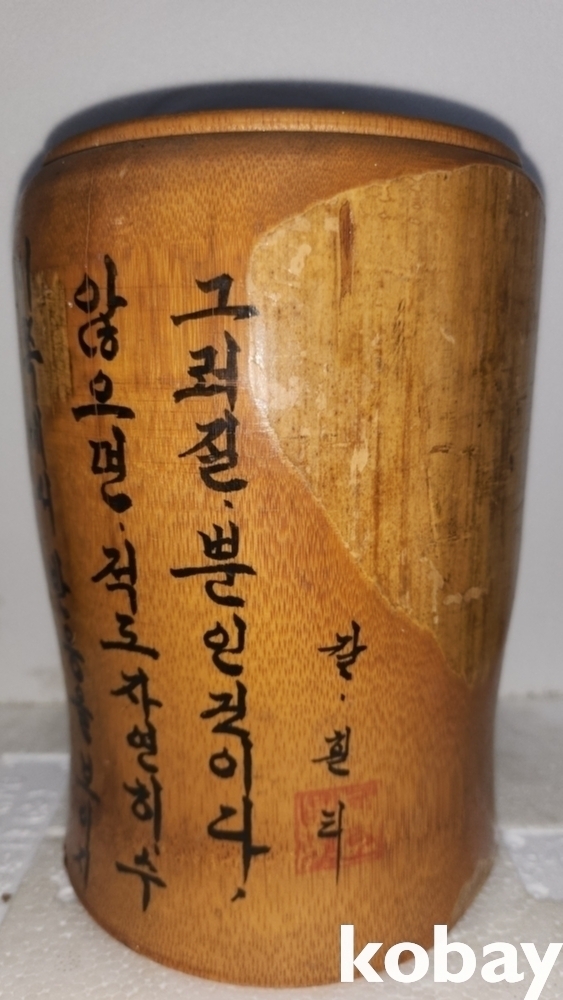 않으면. 적도자연히. 수
그러질. 뿐인것이다.
칼. 힐티
kobay